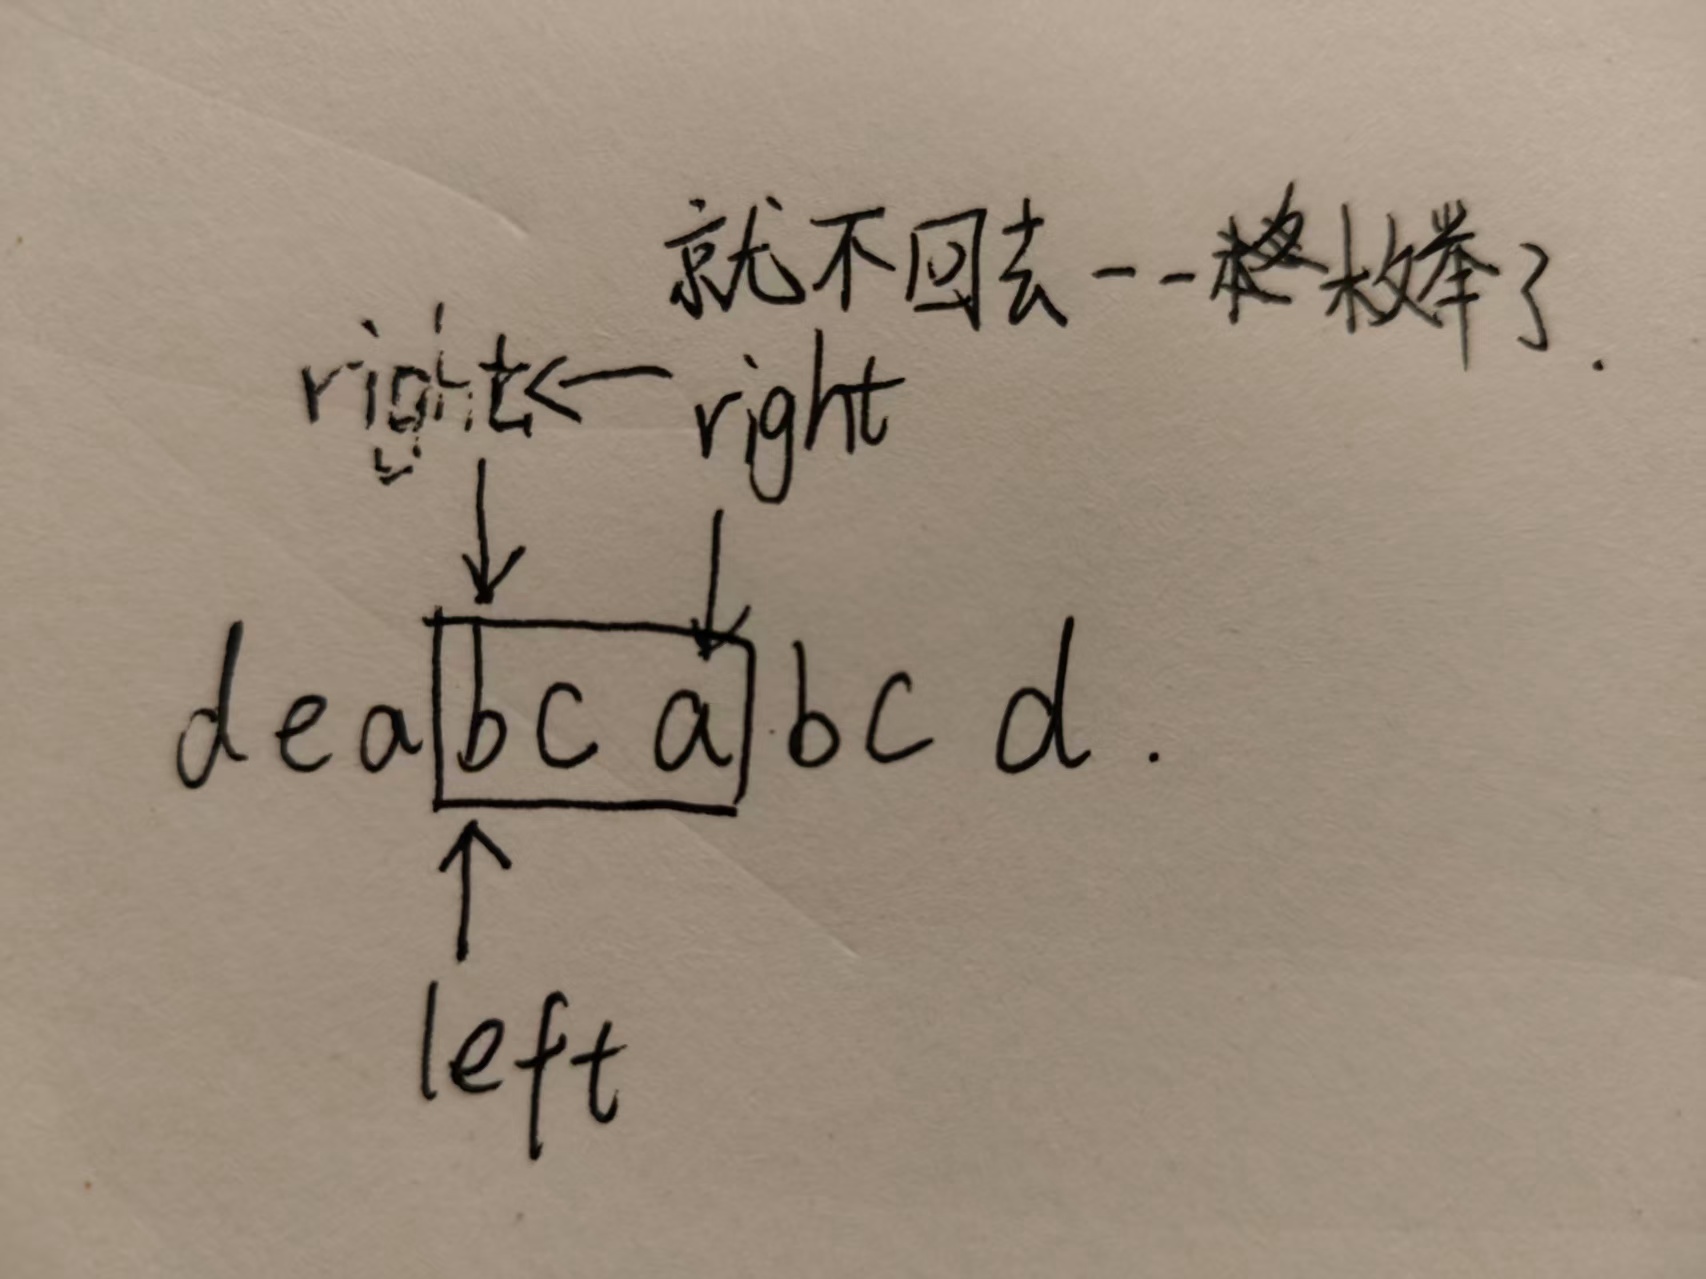 就不回去--枚举了.
right ← right
deabca bcd.
left